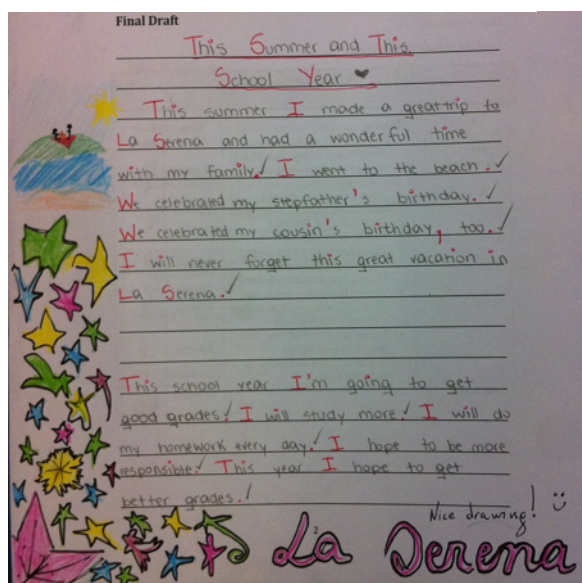 Final Draft
This Summer and This
School Year ❤
This summer I made a great trip to
La Serena and had a wonderful time
with my family. I went to the beach.
We celebrated my stepfather's birthday.
We celebrated my cousin's birthday, too.
I will never forget this great vacation in
La Serena.
This school year I'm going to get
good grades! I will study more! I will do
my homework every day! I hope to be more
responsible! This year I hope to get
better grades.
Nice drawing! :)
2
La Serena